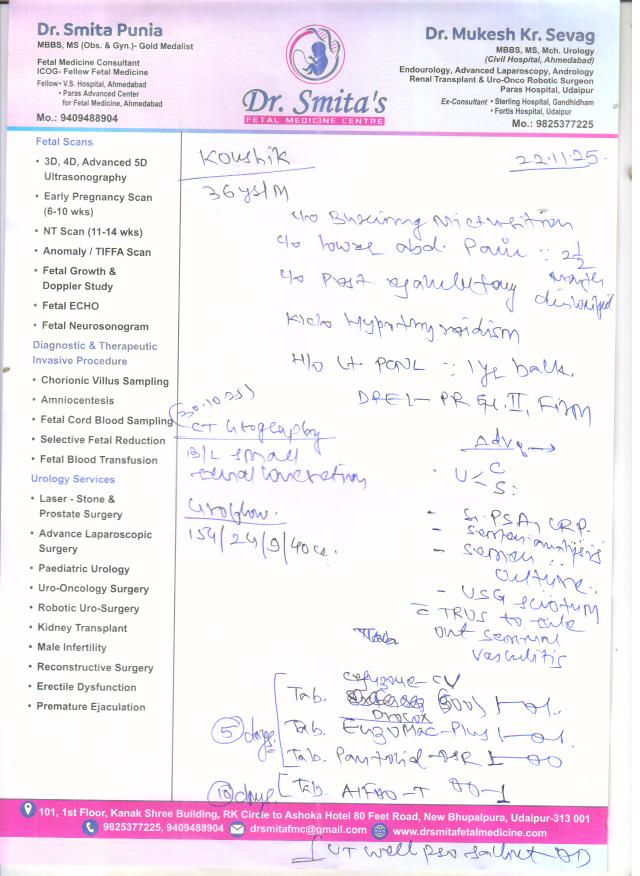 Dr. Smita Punia
MBBS, MS (Obs. & Gyn.)- Gold Medalist
Fetal Medicine Consultant
ICOG- Fellow Fetal Medicine
Fellow • V.S. Hospital, Ahmedabad
• Paras Advanced Center
for Fetal Medicine, Ahmedabad
Mo.: 9409488904
Dr. Smita's
FETAL MEDICINE CENTRE
Dr. Mukesh Kr. Sevag
MBBS, MS, Mch. Urology
(Civil Hospital, Ahmedabad)
Endourology, Advanced Laparoscopy, Andrology
Renal Transplant & Uro-Onco Robotic Surgeon
Paras Hospital, Udaipur
Ex-Consultant • Sterling Hospital, Gandhidham
• Fortis Hospital, Udaipur
Mo.: 9825377225
Fetal Scans
• 3D, 4D, Advanced 5D
Ultrasonography
• Early Pregnancy Scan
(6-10 wks)
• NT Scan (11-14 wks)
• Anomaly / TIFFA Scan
• Fetal Growth &
Doppler Study
• Fetal ECHO
• Fetal Neurosonogram
Diagnostic & Therapeutic
Invasive Procedure
• Chorionic Villus Sampling
• Amniocentesis
• Fetal Cord Blood Sampling
• Selective Fetal Reduction
• Fetal Blood Transfusion
Urology Services
• Laser - Stone &
Prostate Surgery
• Advance Laparoscopic
Surgery
• Paediatric Urology
• Uro-Oncology Surgery
• Robotic Uro-Surgery
• Kidney Transplant
• Male Infertility
• Reconstructive Surgery
• Erectile Dysfunction
• Premature Ejaculation
Koushik
22.11.25.
36 ys/M
c/o Burning Micturition
c/o lower abd. Pain :: 2½
c/o Post ejaculatory
K/c/o Hypothyroidism
H/o Lt PCNL -: 1 yr back.
DRE :- PR Gr. II, Firm
(30.10.25)
CT Urography
B/L small
renal
Uroflow.
154/24/9/40cc.
Adv
U < C
S:
- Sr. PSA, CRP.
- Semen analysis
- Semen ..
culture..
- USG scrotum
c̄ TRUS to rule
out seminal
vasculitis
5 days
Tab. CV (500) 1-01.
Drosox
Tab. EnzoMac-Plus 1-01
Tab. Pantolid-DSR 1-00
10 days
Tab. Alfoo-T 00-1
101, 1st Floor, Kanak Shree Building, RK Circle to Ashoka Hotel 80 Feet Road, New Bhupalpura, Udaipur-313 001
9825377225, 9409488904 drsmitafmc@gmail.com www.drsmitafetalmedicine.com
UT well